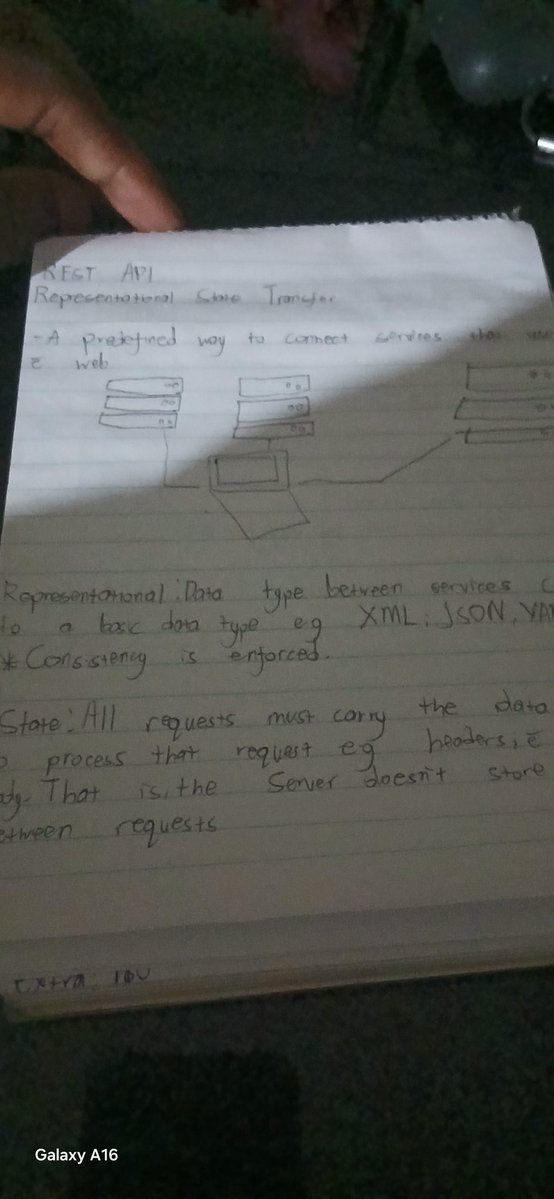 REST API
Representational State Transfer
- A predefined way to connect services that use
c̄ web
Representational: Data type between services c
to a basic data type eg XML, JSON, YAM
* Consistency is enforced.
State: All requests must carry the data
o process that request eg headers, c̄
ody. That is, the Server doesn't store
etween requests
Extra
Galaxy A16